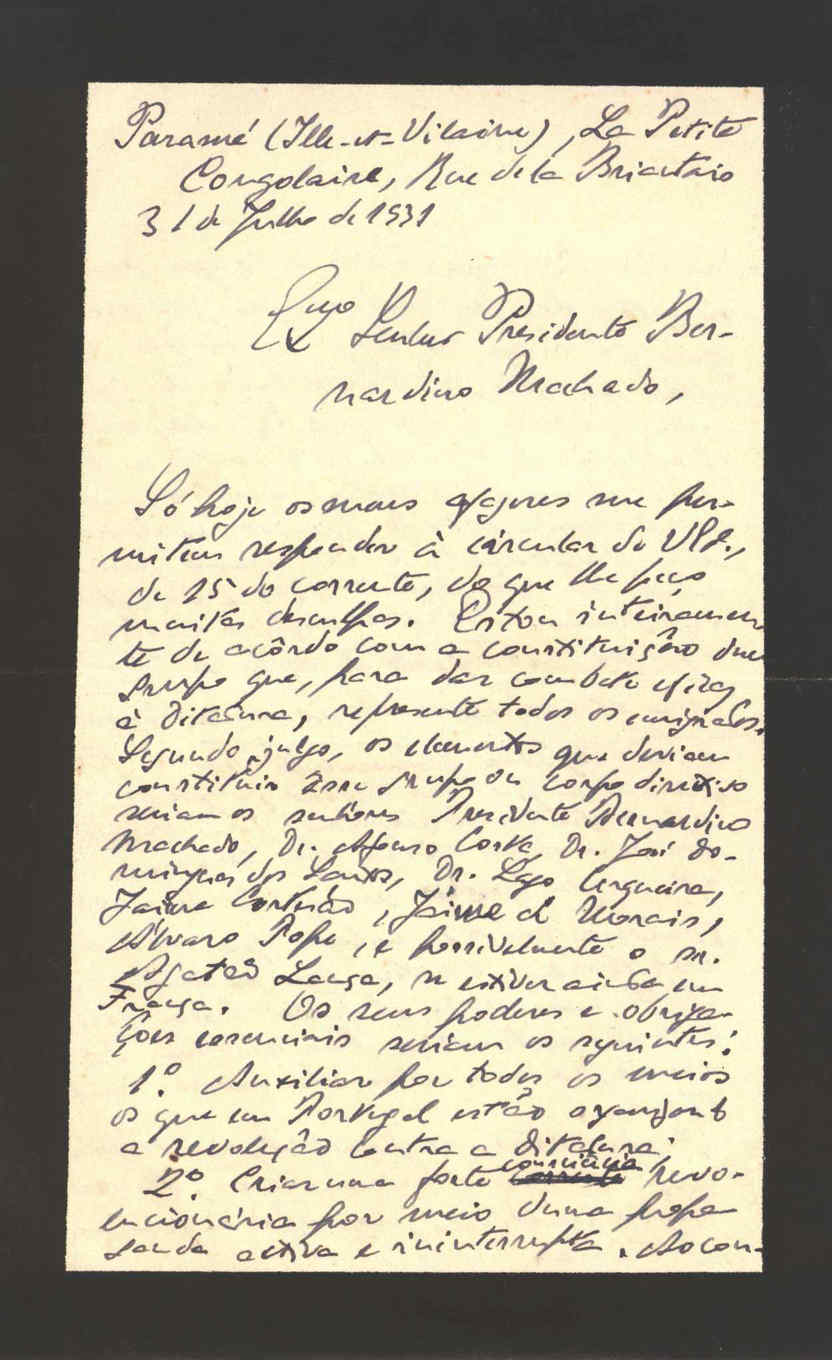 Paramé (Ille-et-Vilaine), La Petite
Congolaise, Rue de la Briantais
31 de Julho de 1931
Exmo Senhor Presidente Ber-
nardino Machado,
Só hoje os meus afazeres me per-
mitem responder à circular do
de 15 do corrente, do que lhe peço
muitas desculpas. Estou inteiramen-
te de acôrdo com a constituição dum
grupo que, para dar combate eficaz
à Ditadura, represente todos os emigrados.
Segundo julgo, os elementos que deviam
constituir êsse grupo ou corpo directivo
seriam os senhores Presidente Bernardino
Machado, Dr. Afonso Costa, Dr. José Do-
mingues dos Santos, Dr. Lago Cerqueira,
Jaime Cortesão, Jaime de Morais,
Álvaro Pope, e possivelmente o sr.
Agatão Lança, se estiver ainda em
França. Os seus poderes e obriga-
ções essenciais seriam os seguintes:
1º. Auxiliar por todos os meios
os que em Portugal estão organizando
a revolução contra a Ditadura;
2º. Criar uma forte consciência revo-
lucionária por meio duma propa-
ganda activa e ininterrupta. Ao con-